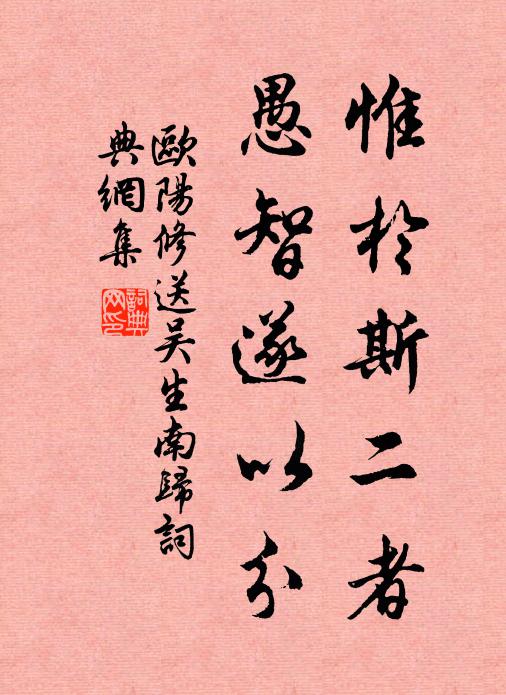 惟於斯二者
愚智遂以分
歐陽修送吴生南歸詞
典網集
詞典網印